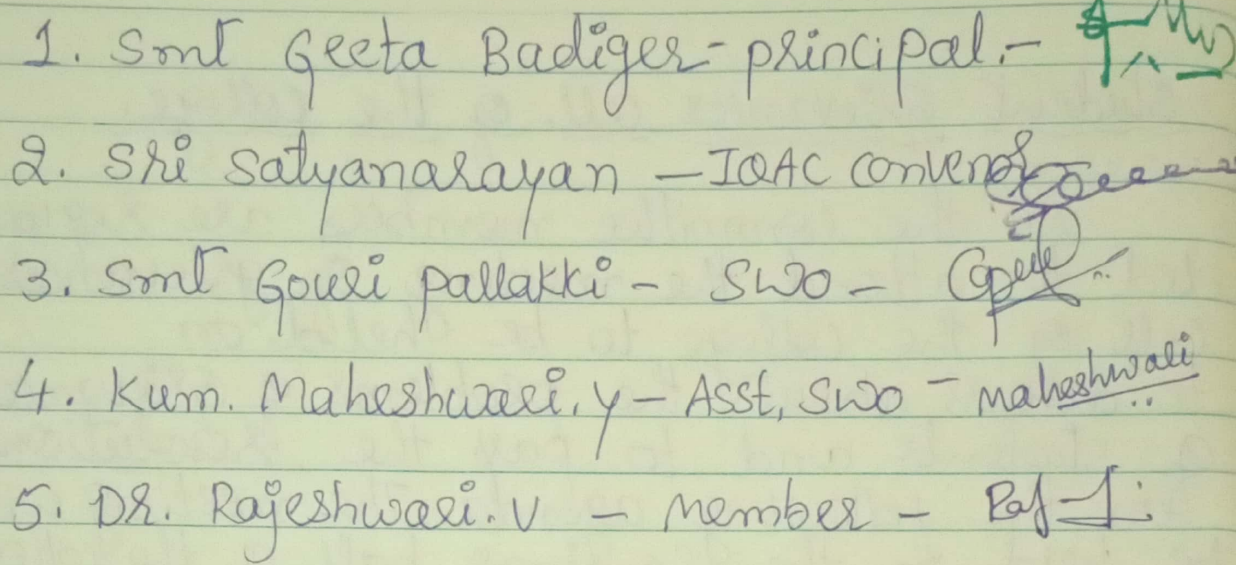 1. Smt Geeta Badiger - principal. -
2. Sri Satyanarayan - IQAC Convenor
3. Smt Gouri pallakki - SWO -
4. Kum. Maheshwari. Y - Asst, SWO - Maheshwari
5. DR. Rajeshwari. V - Member -